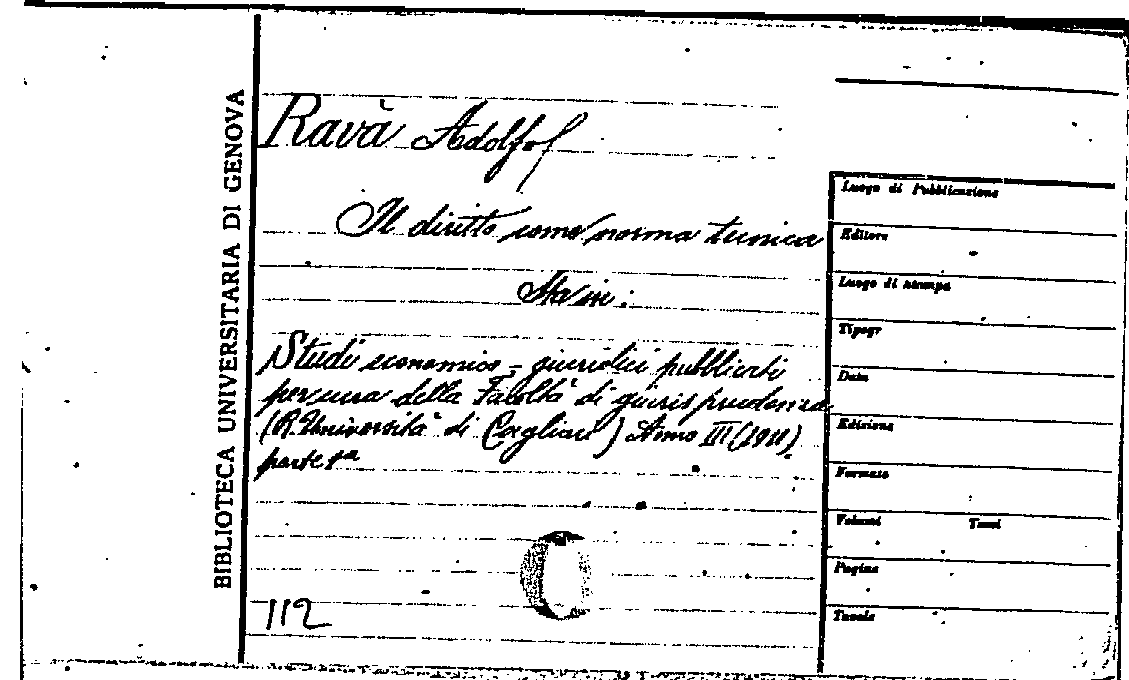 BIBLIOTECA UNIVERSITARIA DI GENOVA
Ravà Adolfo
Il diritto come norma tecnica
Sta in:
Studi economico-giuridici pubblicati
per cura della Facoltà di giurisprudenza
(R. Università di Cagliari) Anno III (1911).
parte 1a
112
Luogo di Pubblicazione
Editore
Luogo di stampa
Tipogr
Data
Edizione
Formato
Volumi Tomi
Pagine
Tavole